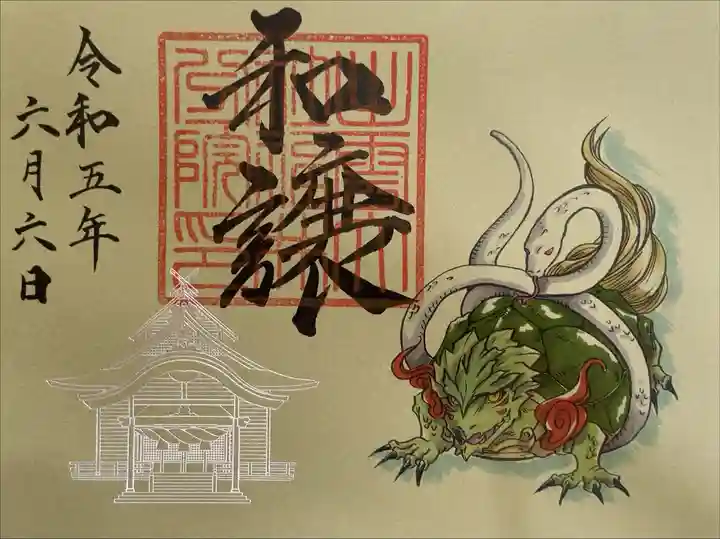 和譲
令和五年
六月六日